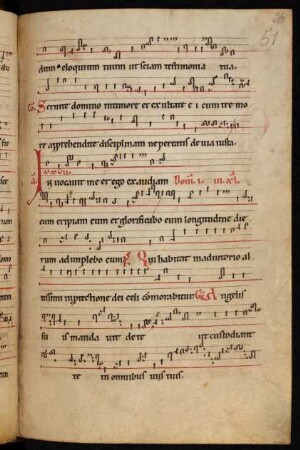 51
dum eloquium tuum ut sciam testimonia tua.
Co. Seruite domino in timore et exultate ei cum tremo
re apprehendite disciplinam ne pereatis de uia iusta
Inuocauit me et ego exaudiam Domi. i. in xl.
eum eripiam eum et glorificabo eum longitudine die
rum adimplebo eum Ps. Qui habitat in adiutorio al
tissimi in protectione dei celi commorabitur Gr. Angelis
su is manda uit de te ut custodiant
te in omnibus uiis tuis.